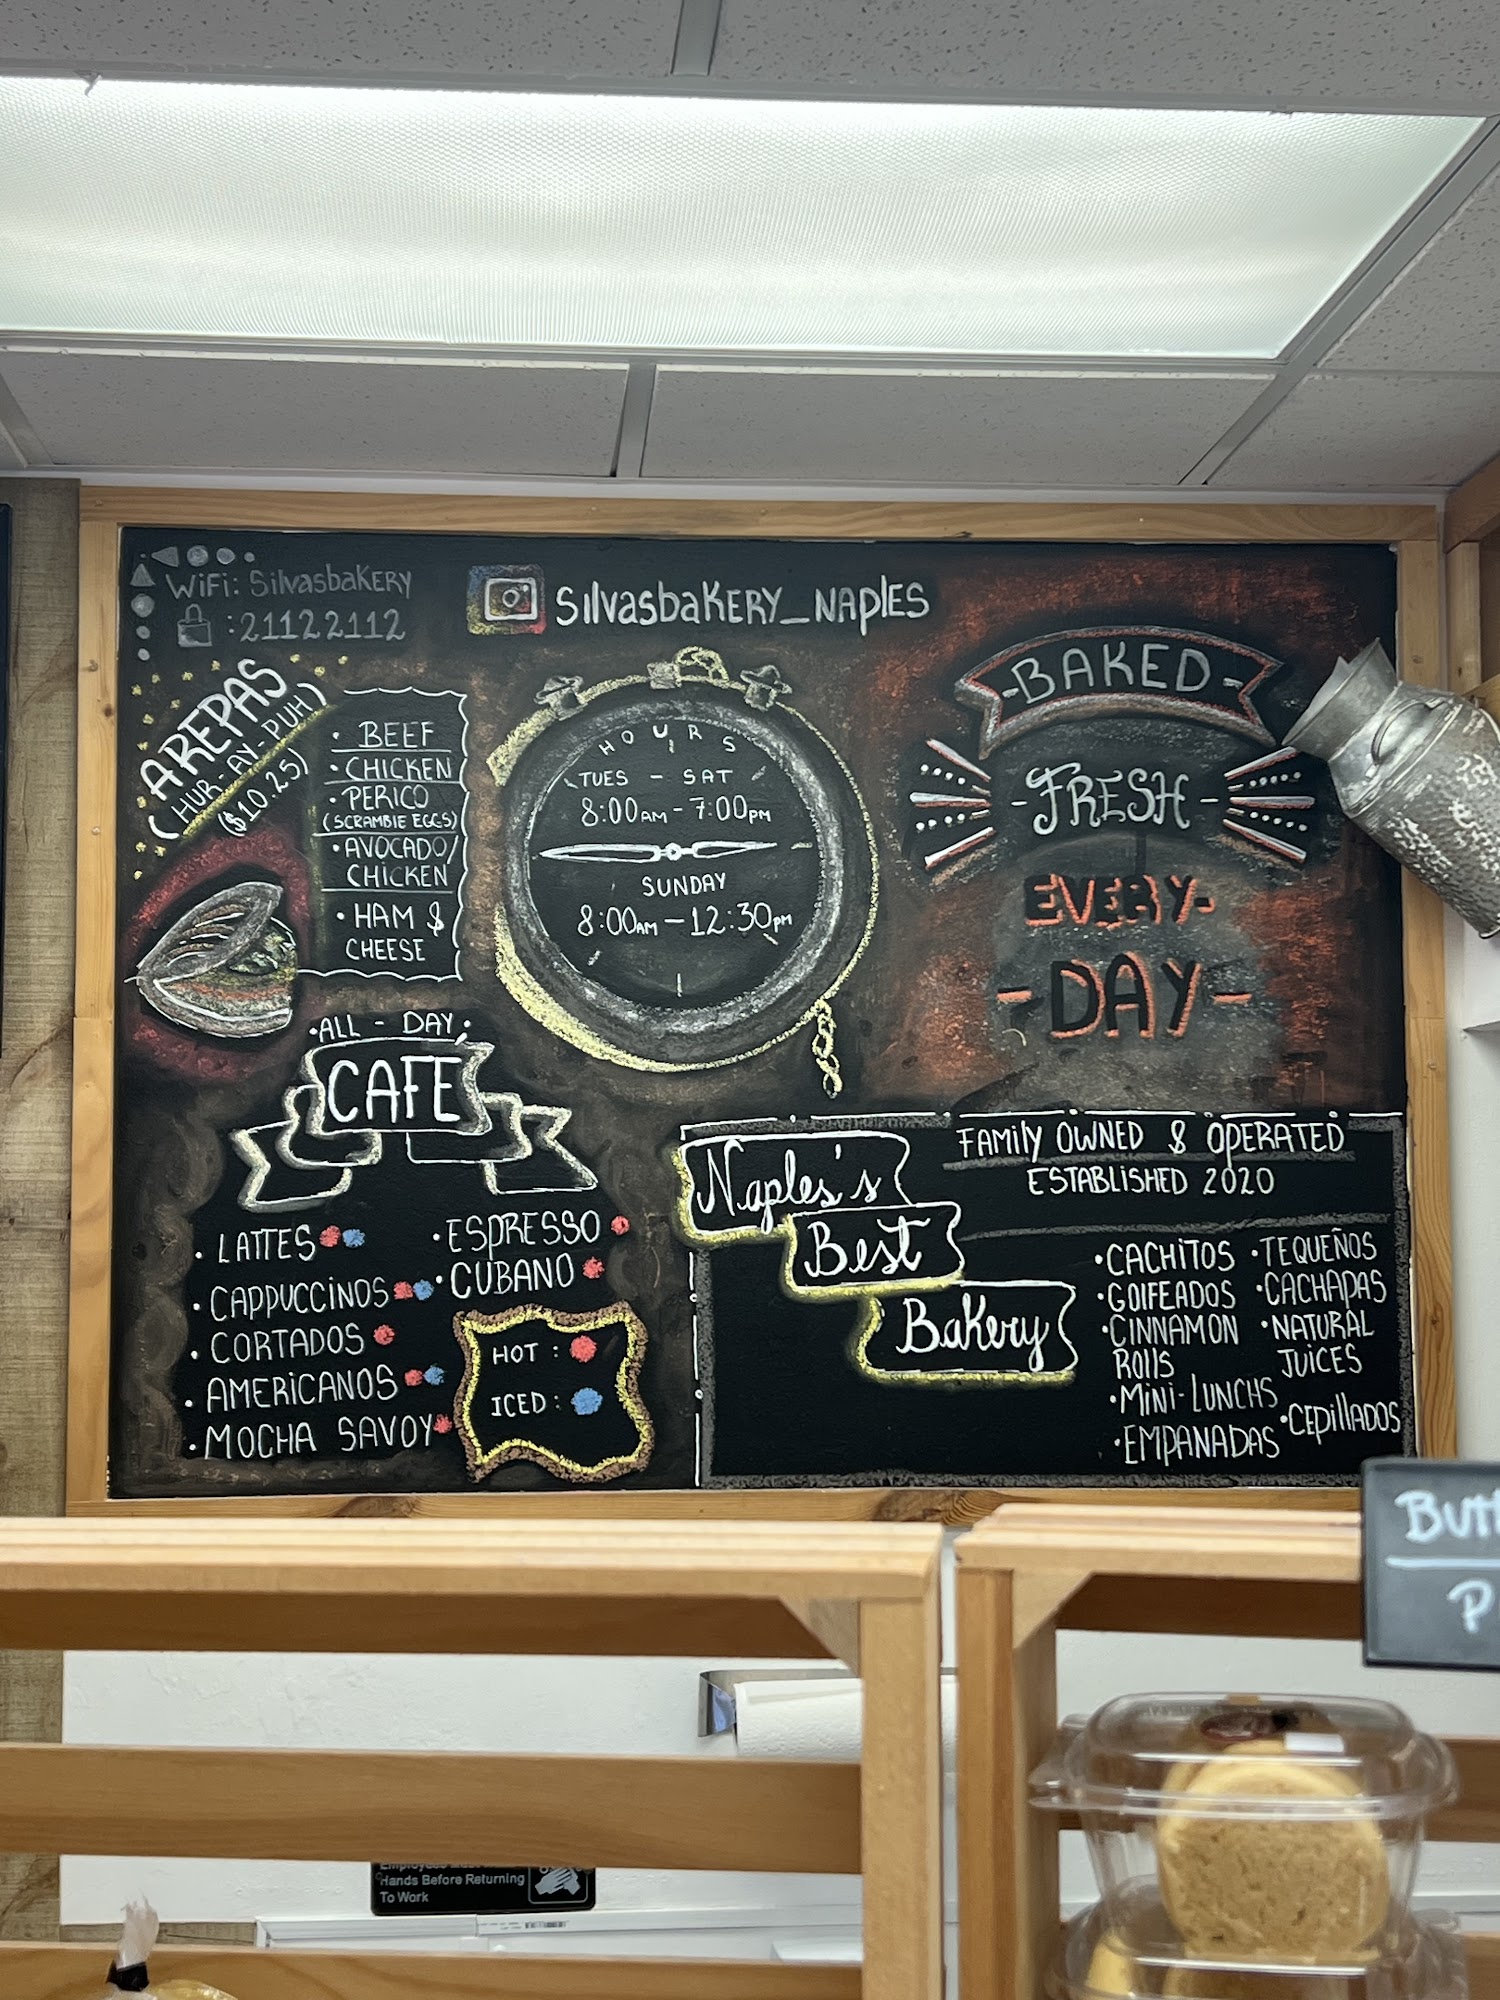 WiFi: SilvasbaKERY
:21122112
SilvasbaKERY_NAplES
AREPAS
(HUR-AY-PUH)
($10.25)
· BEEF
· CHICKEN
· PERICO
(SCRAMBlE EGGS)
· AVOCADO/
CHICKEN
· HAM &
CHEESE
HOURS
TUES - SAT
8:00AM - 7:00PM
SUNDAY
8:00AM - 12:30PM
-BAKED-
-FRESH-
EVERY-
-DAY-
·ALL - DAY·
CAFE
· LATTES
· CAPPUCCINOS
· CORTADOS
· AMERICANOS
· MOCHA SAVOY
· ESPRESSO
· CUBANO
HOT :
ICED :
Naples's
Best
BaKery
FAMily OWNED & OPERATED
ESTABLISHED 2020
· CACHITOS
· GOlFEADOS
· CINNAMON
ROllS
· MiNi-LUNCHS
· EMPANADAS
· TEQUEÑOS
· CACHAPAS
· NATURAL
JUICES
· CEpillADOS
Hands Before Returning
To Work